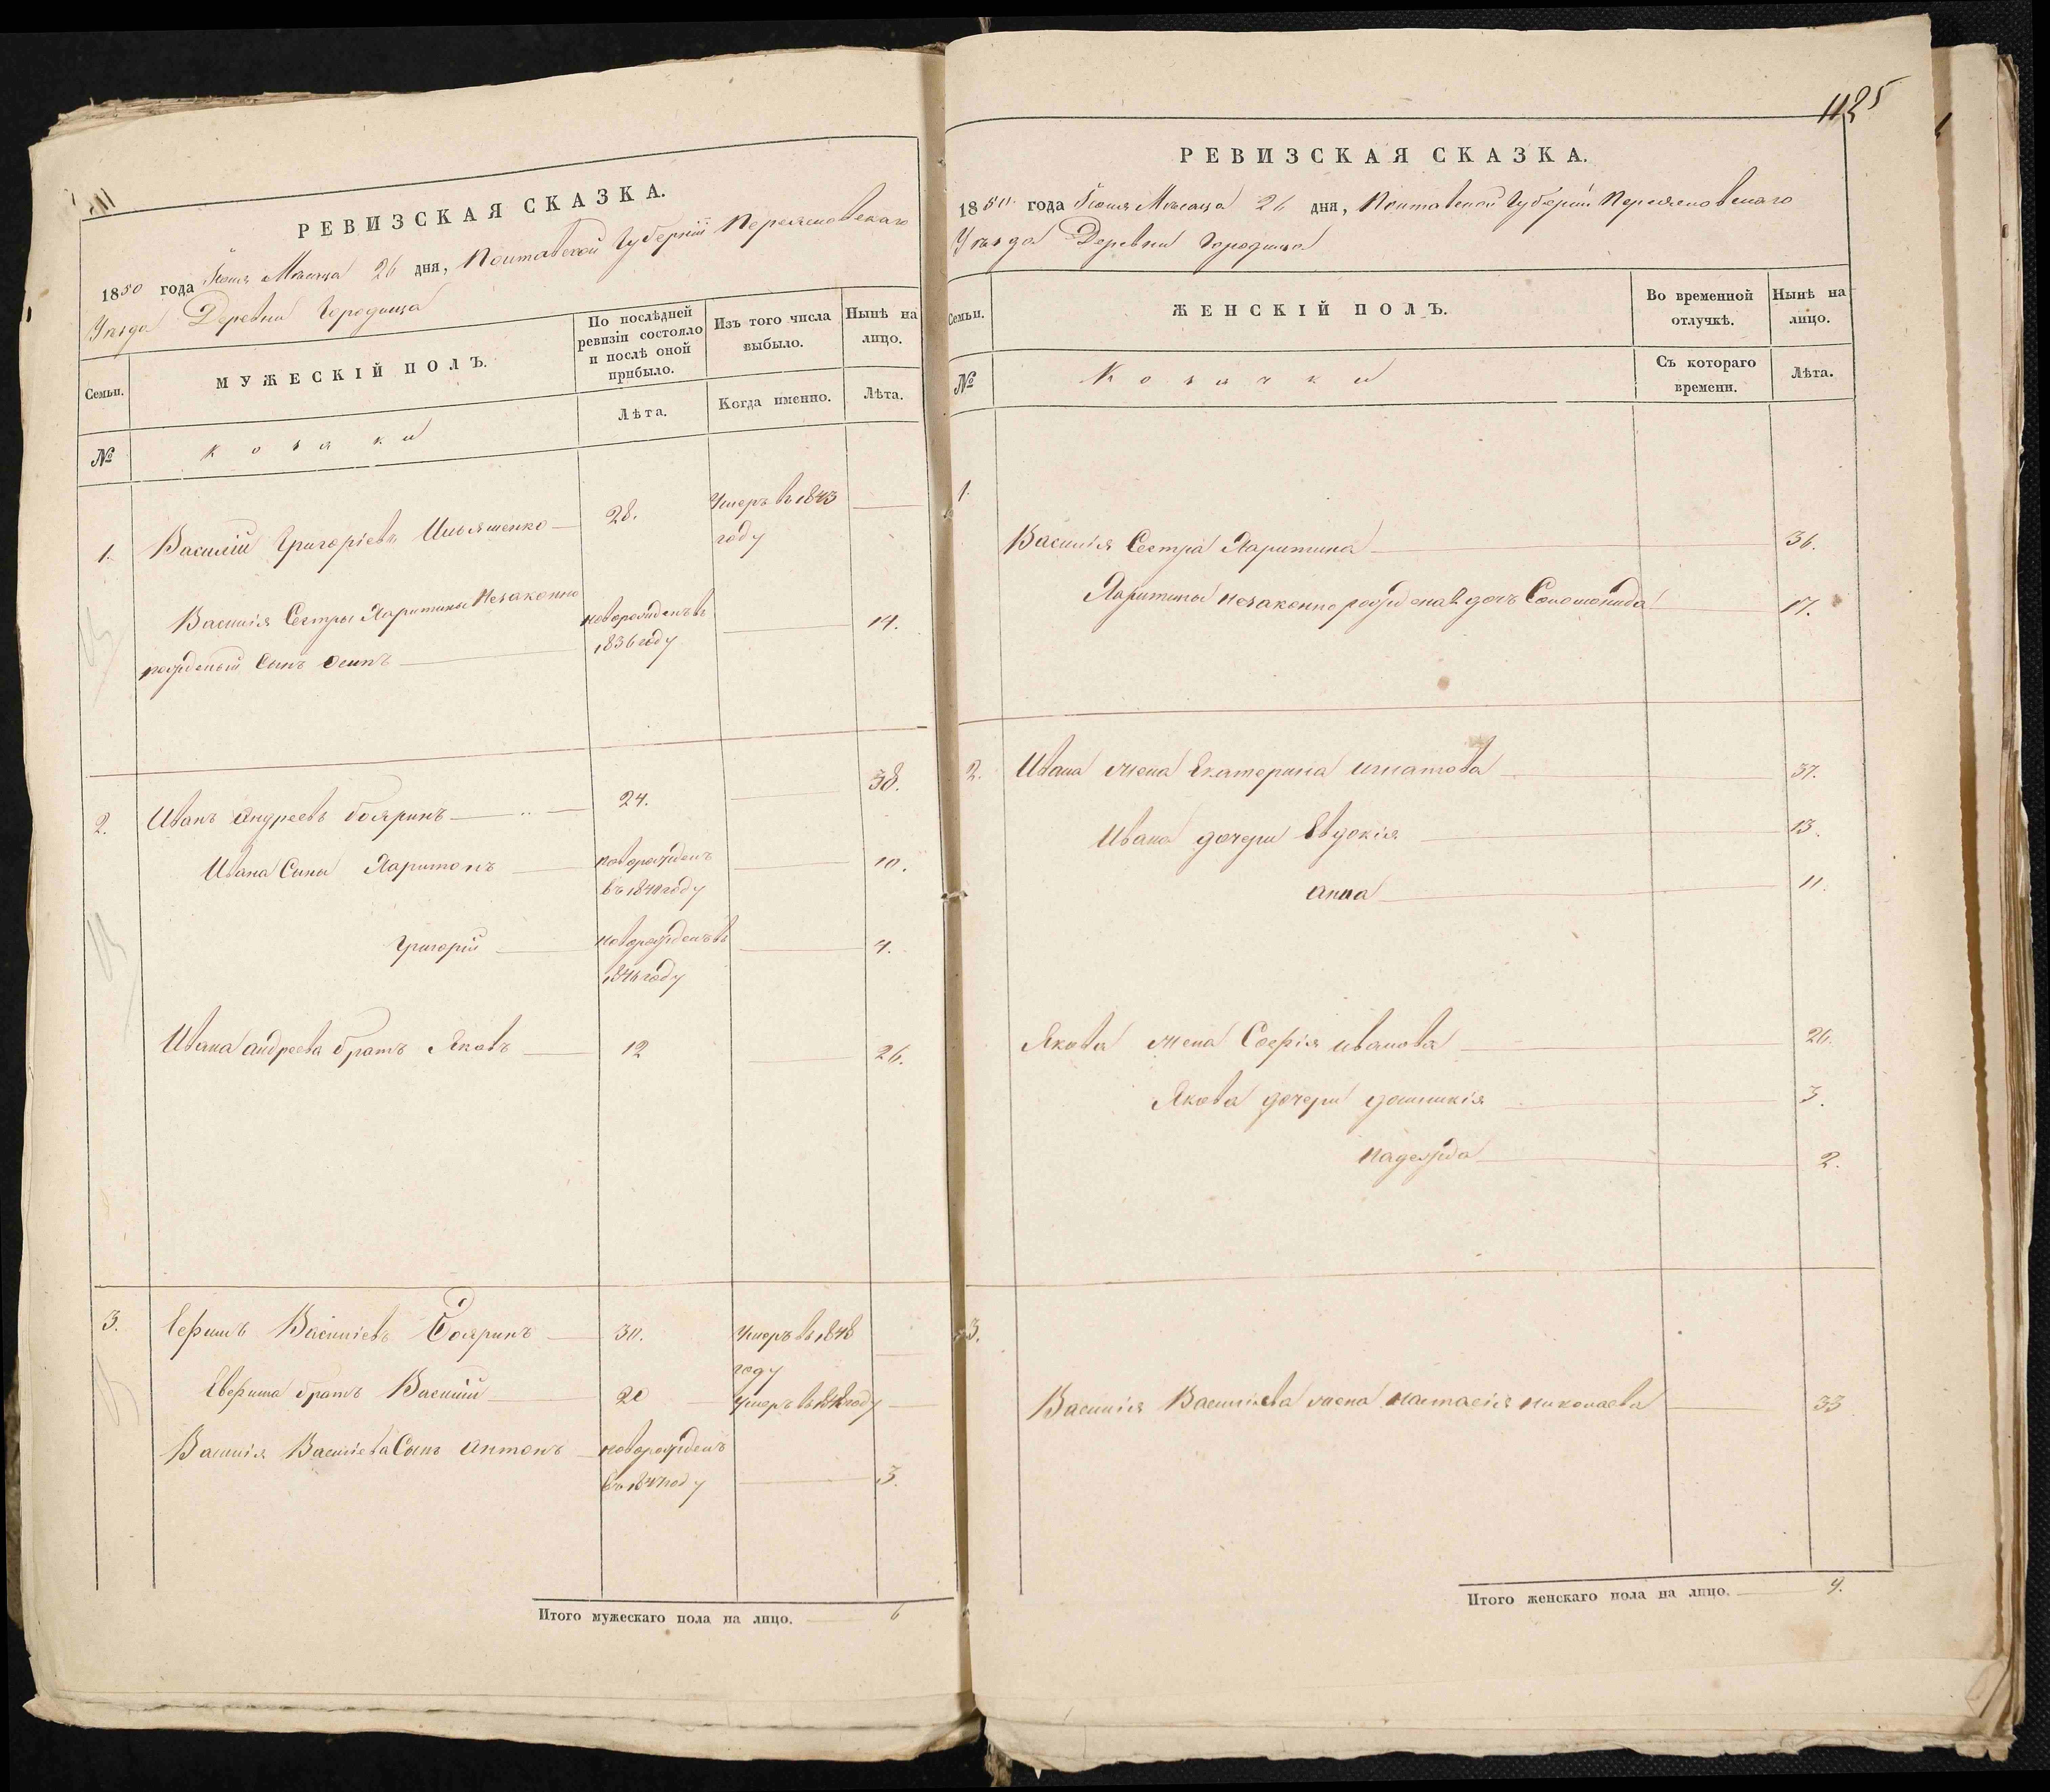 РЕВИЗСКАЯ СКАЗКА.
1850 года Іюня Месяца 26 дня, Полтавской Губерніи Переясловскаго
Уезда Деревни Городища
Семьи.
МУЖЕСКІЙ ПОЛЪ.
По послѣдней ревизіи состояло и послѣ оной прибыло.
Изъ того числа выбыло.
Нынѣ на лицо.
Лѣта.
Когда именно.
Лѣта.
№
Козаки
1. Василій Григоріевъ Ильяшенко 28. Умеръ въ 1843
году
Василія Сестры Харитины Незаконно новорожденъ въ 14.
рожденый Сынъ Осипъ 1836 году
2. Иванъ Андреевъ Бояринъ 24. 38.
Ивана Сыны Харитонъ новорожденъ 10.
въ 1840 году
Григорій новорожденъ въ 4.
1846 году
Ивана андреева братъ Яковъ 12 26.
3. Ефимъ Василіевъ Бояринъ 30. Умеръ въ 1848
году
Евфима братъ Василій 20 умеръ въ году
Василія Василіева Сынъ антонъ новорожденъ
въ 1847 году 3.
Итого мужескаго пола на лицо. 6
1125
РЕВИЗСКАЯ СКАЗКА.
1850 года Іюня Месяца 26 дня, Полтавской Губерніи Переясловскаго
Уезда Деревни Городища
Семьи.
ЖЕНСКІЙ ПОЛЪ.
Во временной отлучкѣ.
Нынѣ на лицо.
№
Козачки
Съ котораго времени.
Лѣта.
1.
Василія Сестра Харитина 36.
Харитины незаконно рожденая дочъ Соломонида 17.
2. Ивана жена Екатерина игнатова 37.
Ивана дочери Евдокія 13.
анна 11.
Якова жена Софія иванова 26.
Якова дочери 3.
надежда 2.
3.
Василія Василіева жена настасія николаева 33
Итого женскаго пола на лицо. 9.